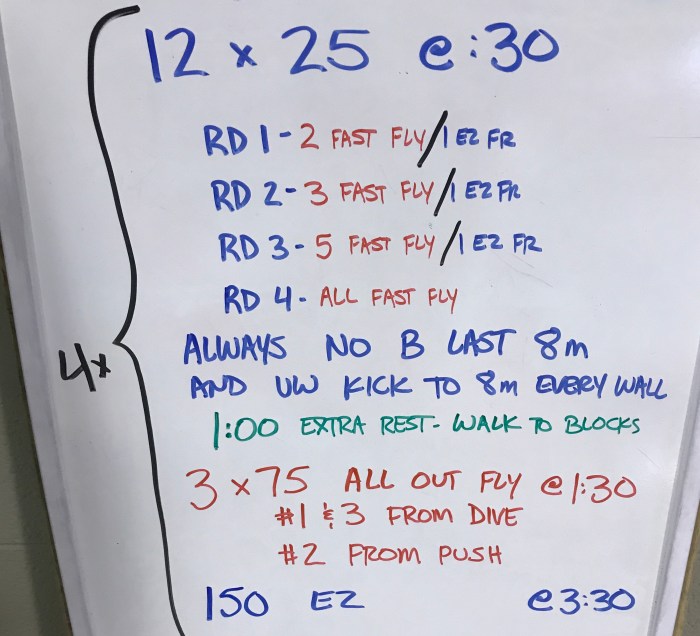 12 x 25 @ :30
RD 1 - 2 FAST FLY / 1 EZ FR
RD 2 - 3 FAST FLY / 1 EZ FR
RD 3 - 5 FAST FLY / 1 EZ FR
RD 4 - ALL FAST FLY
4x
ALWAYS NO B LAST 8m
AND UW KICK TO 8m EVERY WALL
1:00 EXTRA REST - WALK TO BLOCKS
3 x 75 ALL OUT FLY @ 1:30
#1 & 3 FROM DIVE
#2 FROM PUSH
150 EZ @ 3:30